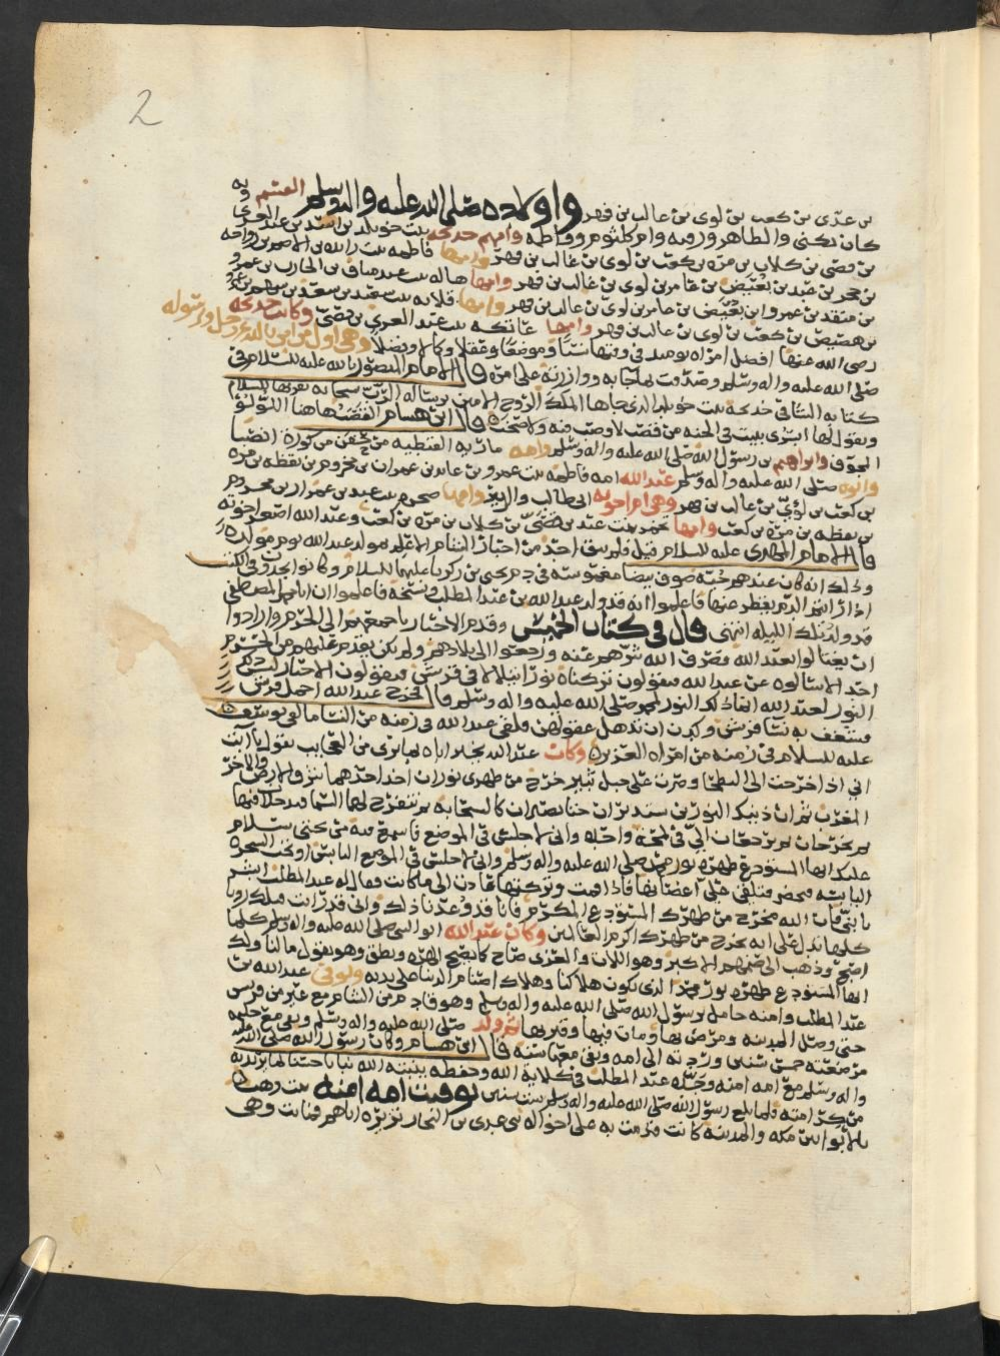 2
بن عدي بن كعب بن لوي بن غالب بن فهر واولاده صلى الله عليه واله وسلم القسم وبه
كان يكنى والطاهر ورقيه وام كلثوم وفاطمه وامهم خديجه بنت خويلد بن اسد بن عبد العزى
بن قصي بن كلاب بن مره بن كعب بن لوي بن غالب بن فهر وامها فاطمه بنت زائده بن الاصم بن رواحه
بن حجر بن عبد بن بغيض بن عامر بن لوي بن غالب بن فهر وامها هاله بنت عبد مناف بن الحارث بن عمرو
بن منقذ بن عمرو بن بغيض بن عامر بن لوي بن غالب بن فهر وامها قلابه بنت سعيد بن سعد بن سهم بن عمرو
بن هصيص بن كعب بن لوي بن غالب بن فهر وامها عاتكه بنت عبد العزى بن قصي وكانت خديجه
رضي الله عنها افضل امراه يوميذ في وقتها نسبا وموضعا وعقلا وكمالا وفضلا وهي اول من امن بالله عز وجل ورسوله
صلى الله عليه واله وسلم وصدقت بما جا به ووازرته على امره قال الامام المنصور بالله عليه السلام في
كتابه الشافي خديجه بنت خويلد الذي جاها الملك الروح الامين برساله الرب سبحانه يقريها السلام
ويقول لها ابشري ببيت في الجنه من قصب لا وصب فيه ولا صخب قال ابن هشام القصب هاهنا اللؤلؤ
المجوف وابراهيم بن رسول الله صلى الله عليه واله وسلم وامه ماريه القبطيه من حفن من كورة انصنا
وابوه صلى الله عليه واله وسلم عبد الله امه فاطمه بنت عمرو بن عايد بن عمران بن مخزوم بن يقظه بن مره
بن كعب بن لؤي بن غالب بن فهر وهي ام اخويه ابي طالب والزبير وامها صخره بنت عبد بن عمران بن مخزوم
بن يقظه بن مره بن كعب وامها تخمر بنت عبد بن قصي بن كلاب بن مره بن كعب وعبد الله اصغر اخوته
قال الامام الهادي عليه السلام فيل فلم يبق احد من احبار الشام الا علم بمولد عبد الله يوم مولده
وذلك انه كان عندهم جبه صوف بيضا مغموسه في دم يحيى بن زكريا عليهما السلام وكانوا يجدون في الكتب
اذا رايتم الدم يقطر منها فاعلموا انه قد ولد عبد الله بن عبد المطلب ونسخه فاعلموا ان ابا محمد المصطفى
قد ولد تلك الليله انتهى قال في كتاب الخميس وقدم الاحبار باجمعهم الى الحرم وارادوا
ان يغتالوا بعبد الله وصرف الله شرهم عنه ورجعوا الى بلادهم ولم يكن يقدم عليهم من الحرم
احد الا سالوه عن عبد الله فيقولون تركناه نورا يتلالا في قريش فيقولون الاحبار ليس ذلك
النور لعبد الله انما ذلك النور لمحمد صلى الله عليه واله وسلم قال فخرج عبد الله اجمل قريش
فشغف به نسا قريش وكدن ان تذهل عقولهن فلقي عبد الله في زمنه من النسا ما لقي يوسف
عليه السلام في زمنه من امراه العزيز وكان عبد الله يخبر اباه بما يرى من العجايب يقول يا ابت
اني اذا خرجت الى البطحا وصرت على جبل ثبير خرج من ظهري نوران اخذ احدهما شرق الارض والاخر
الغرب ثم ان ذينك النورين يستديران حتا يصيران كالسحابه ثم تنفرج لهما السما فيدخلا فيها
ثم يخرجان ثم يرجعان الي في لمحه واحده واني لاجلس في الموضع فاسمع فيه من تحتي سلام
عليك ايها المستودع ظهره نور محمد صلى الله عليه واله وسلم واني لاجلس في الموضع اليابس او تحت الشجره
اليابسه فتخضر وتلقي علي اغصانها فاذا قمت وتركتها عادت الى ما كانت فقال له عبد المطلب ابشر
يا بني فان الله مخرج من ظهرك المستودع المكرم فانا قد وعدنا ذلك واني قد رايت قبلك رويا
كلها تدل على انه يخرج من ظهرك اكرم العالمين وكان عبد الله ابو النبي صلى الله عليه واله وسلم كلما
اصبح وذهب الى صنمهم الاكبر وهو اللات والعزى صاح كما يصيح الهره وينطق وهو يقول ما لنا ولك
ايها المستودع ظهره نور محمد الذي يكون هلاكنا وهلاك اصنام الدنيا على يديه وتوفي عبد الله بن
عبد المطلب وامنه حامل برسول الله صلى الله عليه واله وسلم وهو قادم من الشام مع عير من قريش
حتى وصل المدينه ومرض بها ومات فيها وقبر بها ثم ولد صلى الله عليه واله وسلم وبقي مع حليمه
مرضعته خمس سنين وردته الى امه وبقي معها سنه قال ابن هشام وكان رسول الله صلى الله عليه
واله وسلم مع امه امنه وجده عبد المطلب في كلاية الله وحفظه ينبته الله نباتا حسنا لما يريد به
من كرامته فلما بلغ رسول الله صلى الله عليه واله وسلم ست سنين توفيت امه امنه بنت وهب
بالابوا بين مكه والمدينه كانت قدمت به على اخواله بني عدي بن النجار تزيره اياهم فماتت وهي